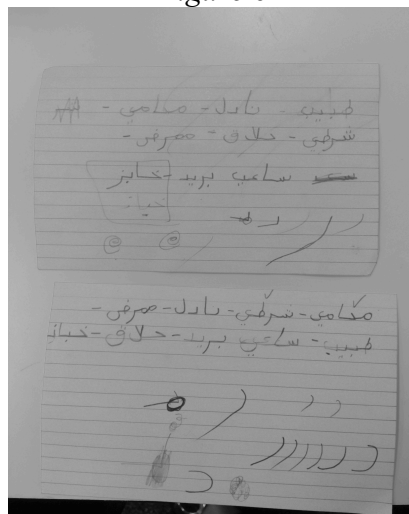 طبيب - نادل - محامي -
شرطي - حلاق - ممرض -
ساعي بريد - خابز
خباز
محامي - شرطي - نادل - ممرض -
طبيب - ساعي بريد - حلاق - خباز